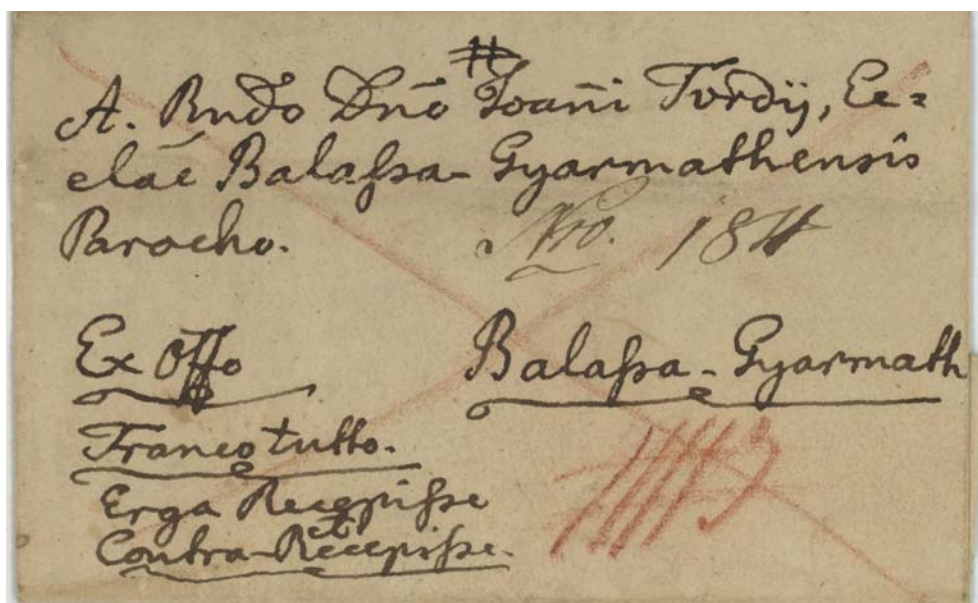 A. Rndo Dno Joañi Turdÿ, Ec=
clae Balassa-Gyarmathensis
Parocho.
Nro. 184
Ex Offo
Balassa-Gyarmath
Franco tutto.
Erga Recepisse
et
Contra-Recepisse.